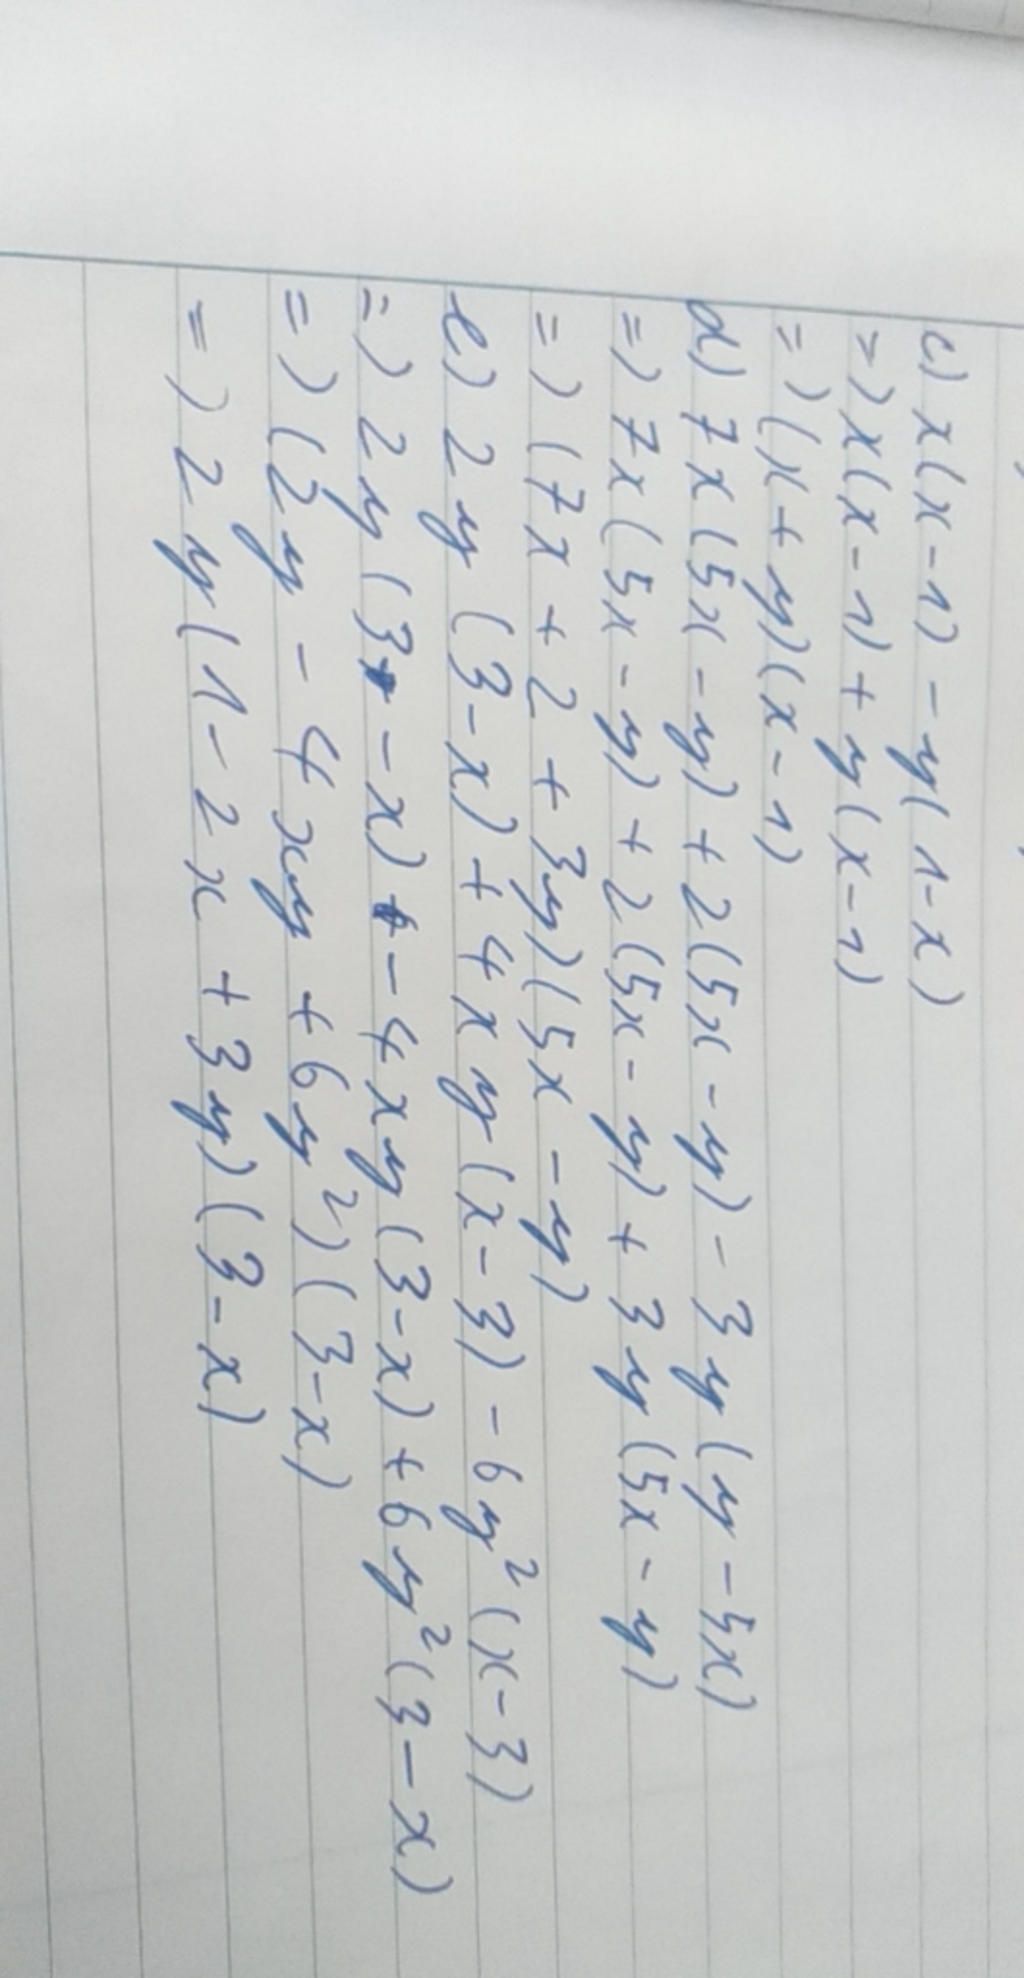 c) x(x-1) - y(1-x)
=) x(x-1) + y(x-1)
=) (x+y)(x-1)
d) 7x(5x-y) + 2(5x-y) - 3y(y-5x)
=) 7x(5x-y) + 2(5x-y) + 3y(5x-y)
=) (7x+2+3y)(5x-y)
e) 2y(3-x) + 4xy(x-3) - 6y²(x-3)
=) 2y(3-x) - 4xy(3-x) + 6y²(3-x)
=) (2y - 4xy + 6y²)(3-x)
=) 2y(1-2x+3y)(3-x)